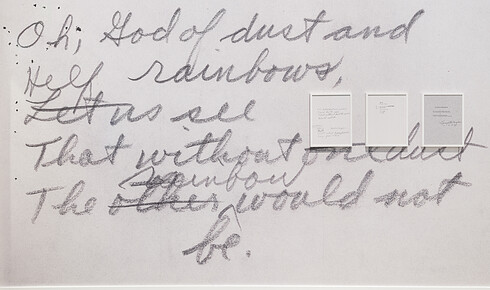 Oh, God of dust and
Help rainbows,
Let us see
That without one dust
rainbow
The other would not
be.